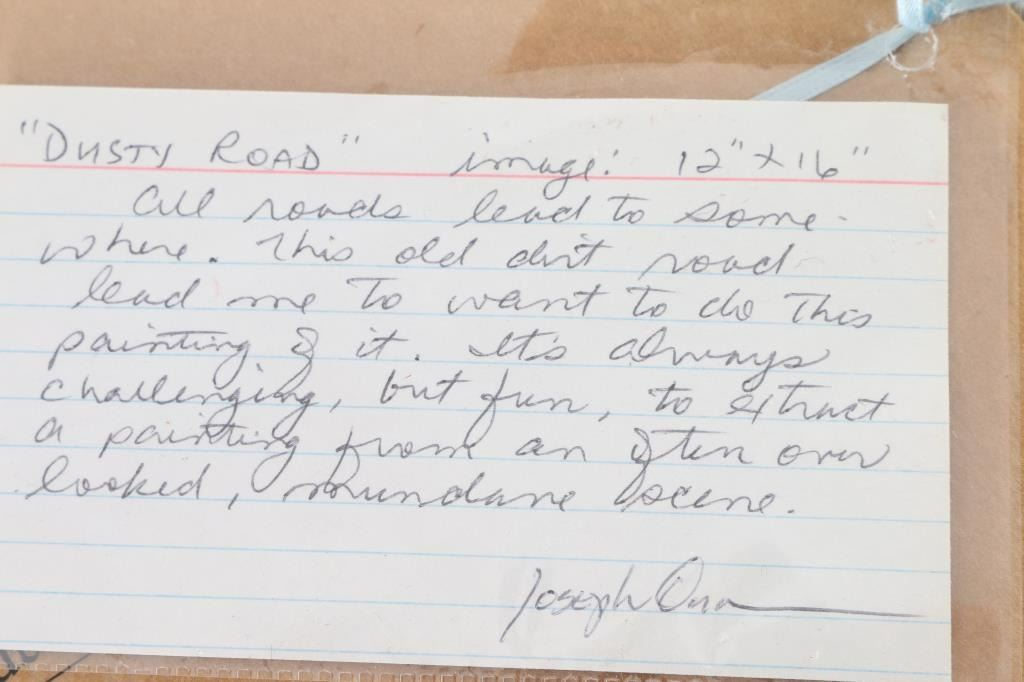 "DUSTY ROAD" image: 12" x 16"
All roads lead to some-
where. This old dirt road
lead me to want to do this
painting of it. It's always
challenging, but fun, to extract
a painting from an often over
looked, mundane scene.
Joseph